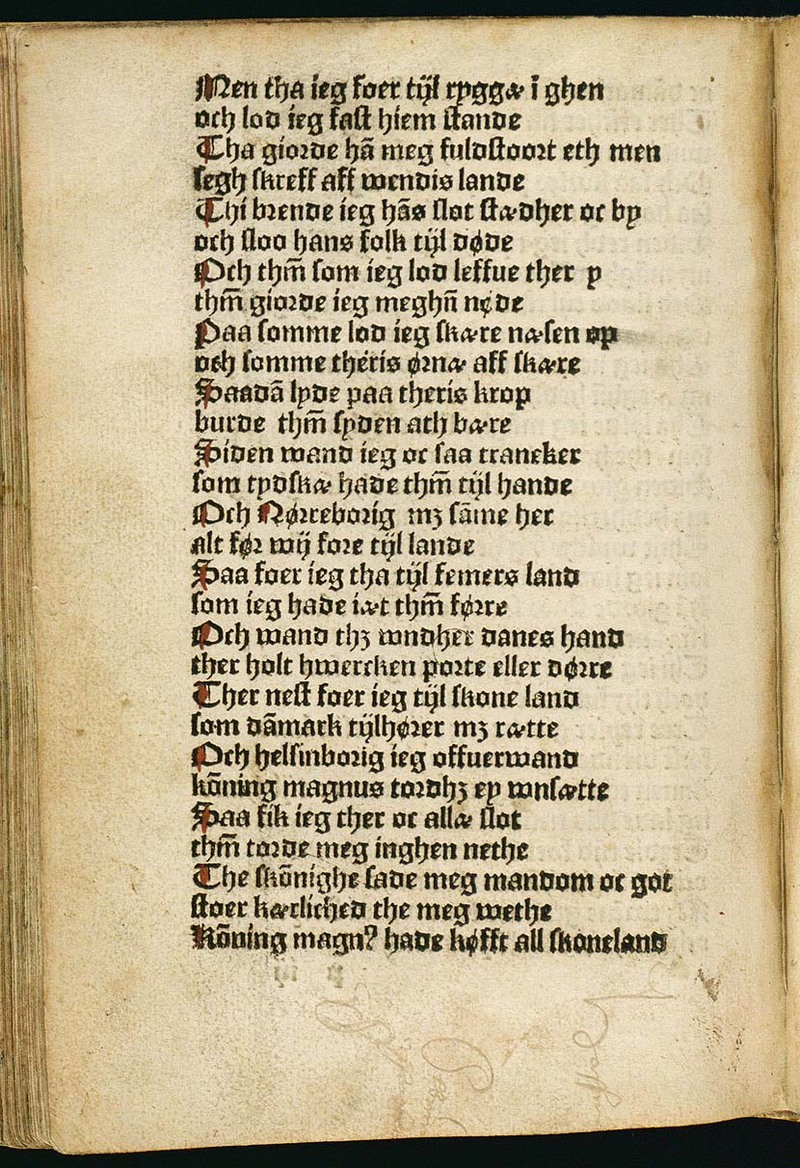 Men tha ieg foer tijl ryggæ ī ghen
och lod ieg fast hiem stande
Tha giorde hā meg fuldstoort eth men
segh skreff aff wendis lande
Thi brende ieg hās slot stædher oc by
och sloo hans folk tijl døde
Och thm̄ som ieg lod leffue ther y
thm̄ giorde ieg meghn̄ nøde
Paa somme lod ieg skære næsen op
och somme theris ørnæ aff skære
Saadā lyde paa theris krop
burde thm̄ syden ath bære
Siden wand ieg oc saa traneker
som tydskæ hade thm̄ tijl hande
Och Nørreborig mꝫ sāme her
alt før wij fore tijl lande
Saa foer ieg tha tijl femers land
som ieg hade iæt thm̄ førre
Och wand thꝫ wndher danes hand
ther holt hwercken porte eller dørre
Ther nest foer ieg tijl skone land
som dāmark tijlhører mꝫ rætte
Och helsinborig ieg offuerwand
kōning magnus tordhꝫ ey wnsætte
Saa fik ieg ther oc allæ slot
thm̄ torde meg inghen nethe
The skōnighe sade meg mandom oc got
stoer kærliched the meg wethe
Kōning magn? hade køfft all skoneland